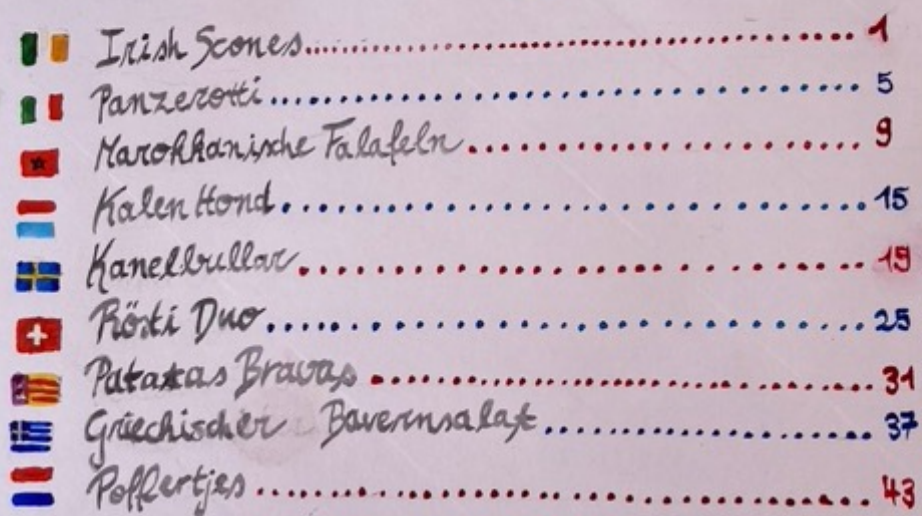 Irish Scones 1
Panzerotti 5
Marokkanische Falafeln 9
Kalen Hond 15
Kanelbullar 19
Rösti Duo 25
Patatas Bravas 31
Griechischer Bauernsalat 37
Poffertjes 43